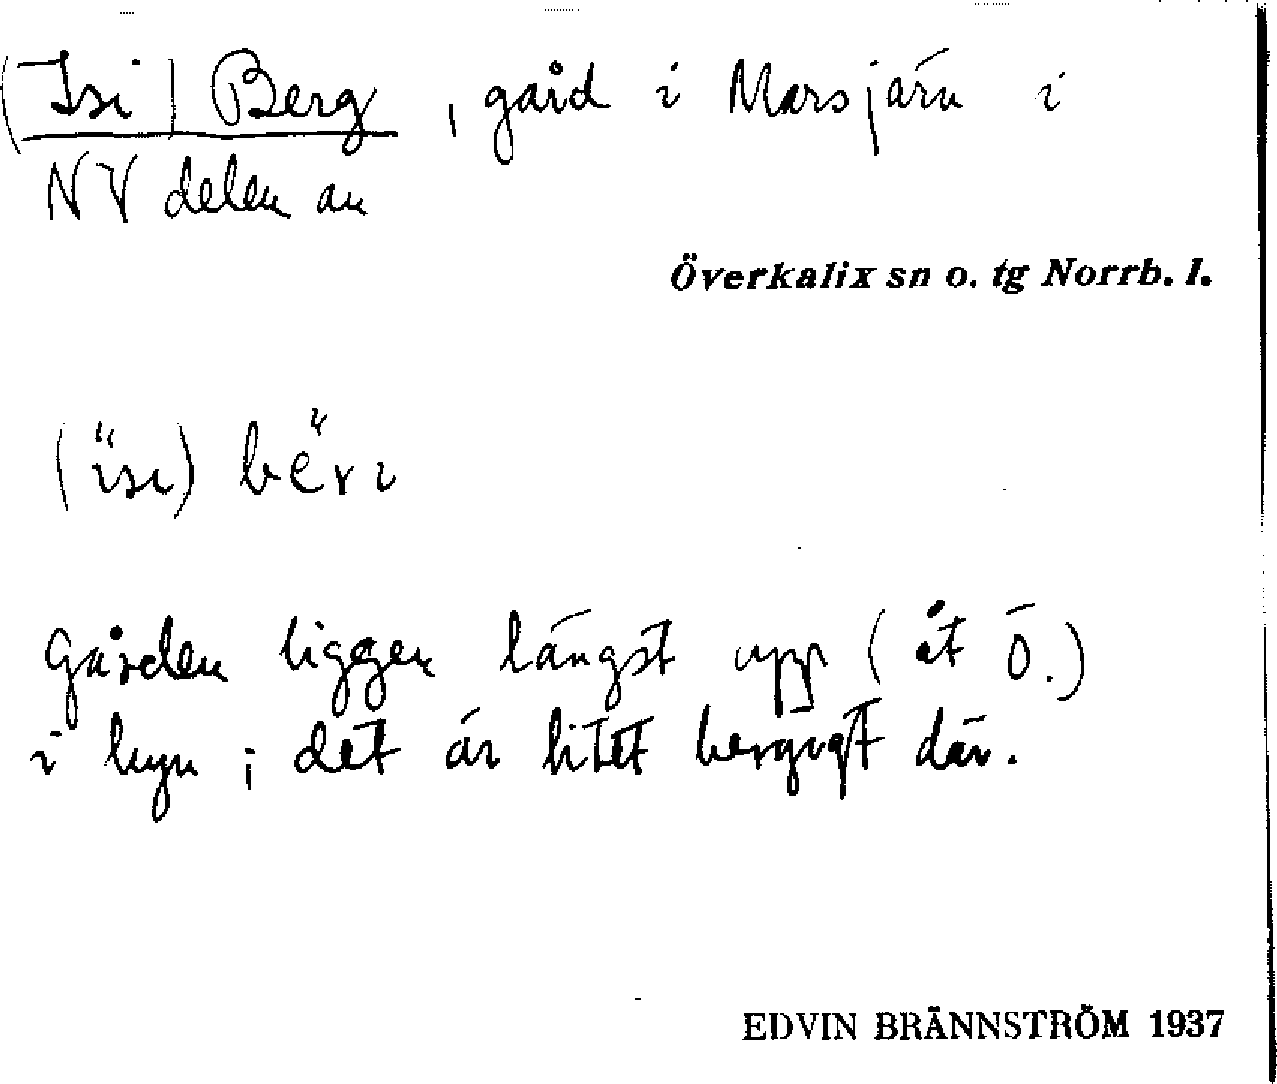 (Isi) Berg, gård i Marsjärv i
NV delen av
Överkalix sn o. tg Norrb. l.
(isi) beri
Gården ligger längst upp (åt Ö.)
i byn; det är litet bergigt där.
EDVIN BRÄNNSTRÖM 1937